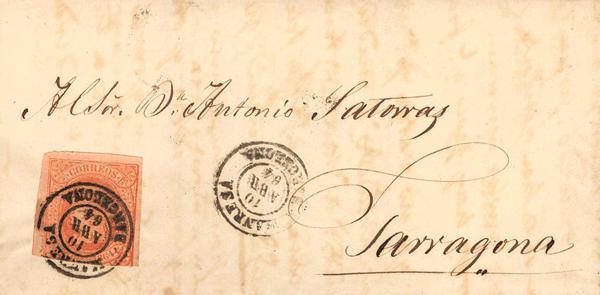 Al Sor. Dn. Antonio Satorras
CORREOS
MANRESA
10
ABR
64
BARCELONA
MANRESA
10
ABR
64
BARCELONA
Tarragona